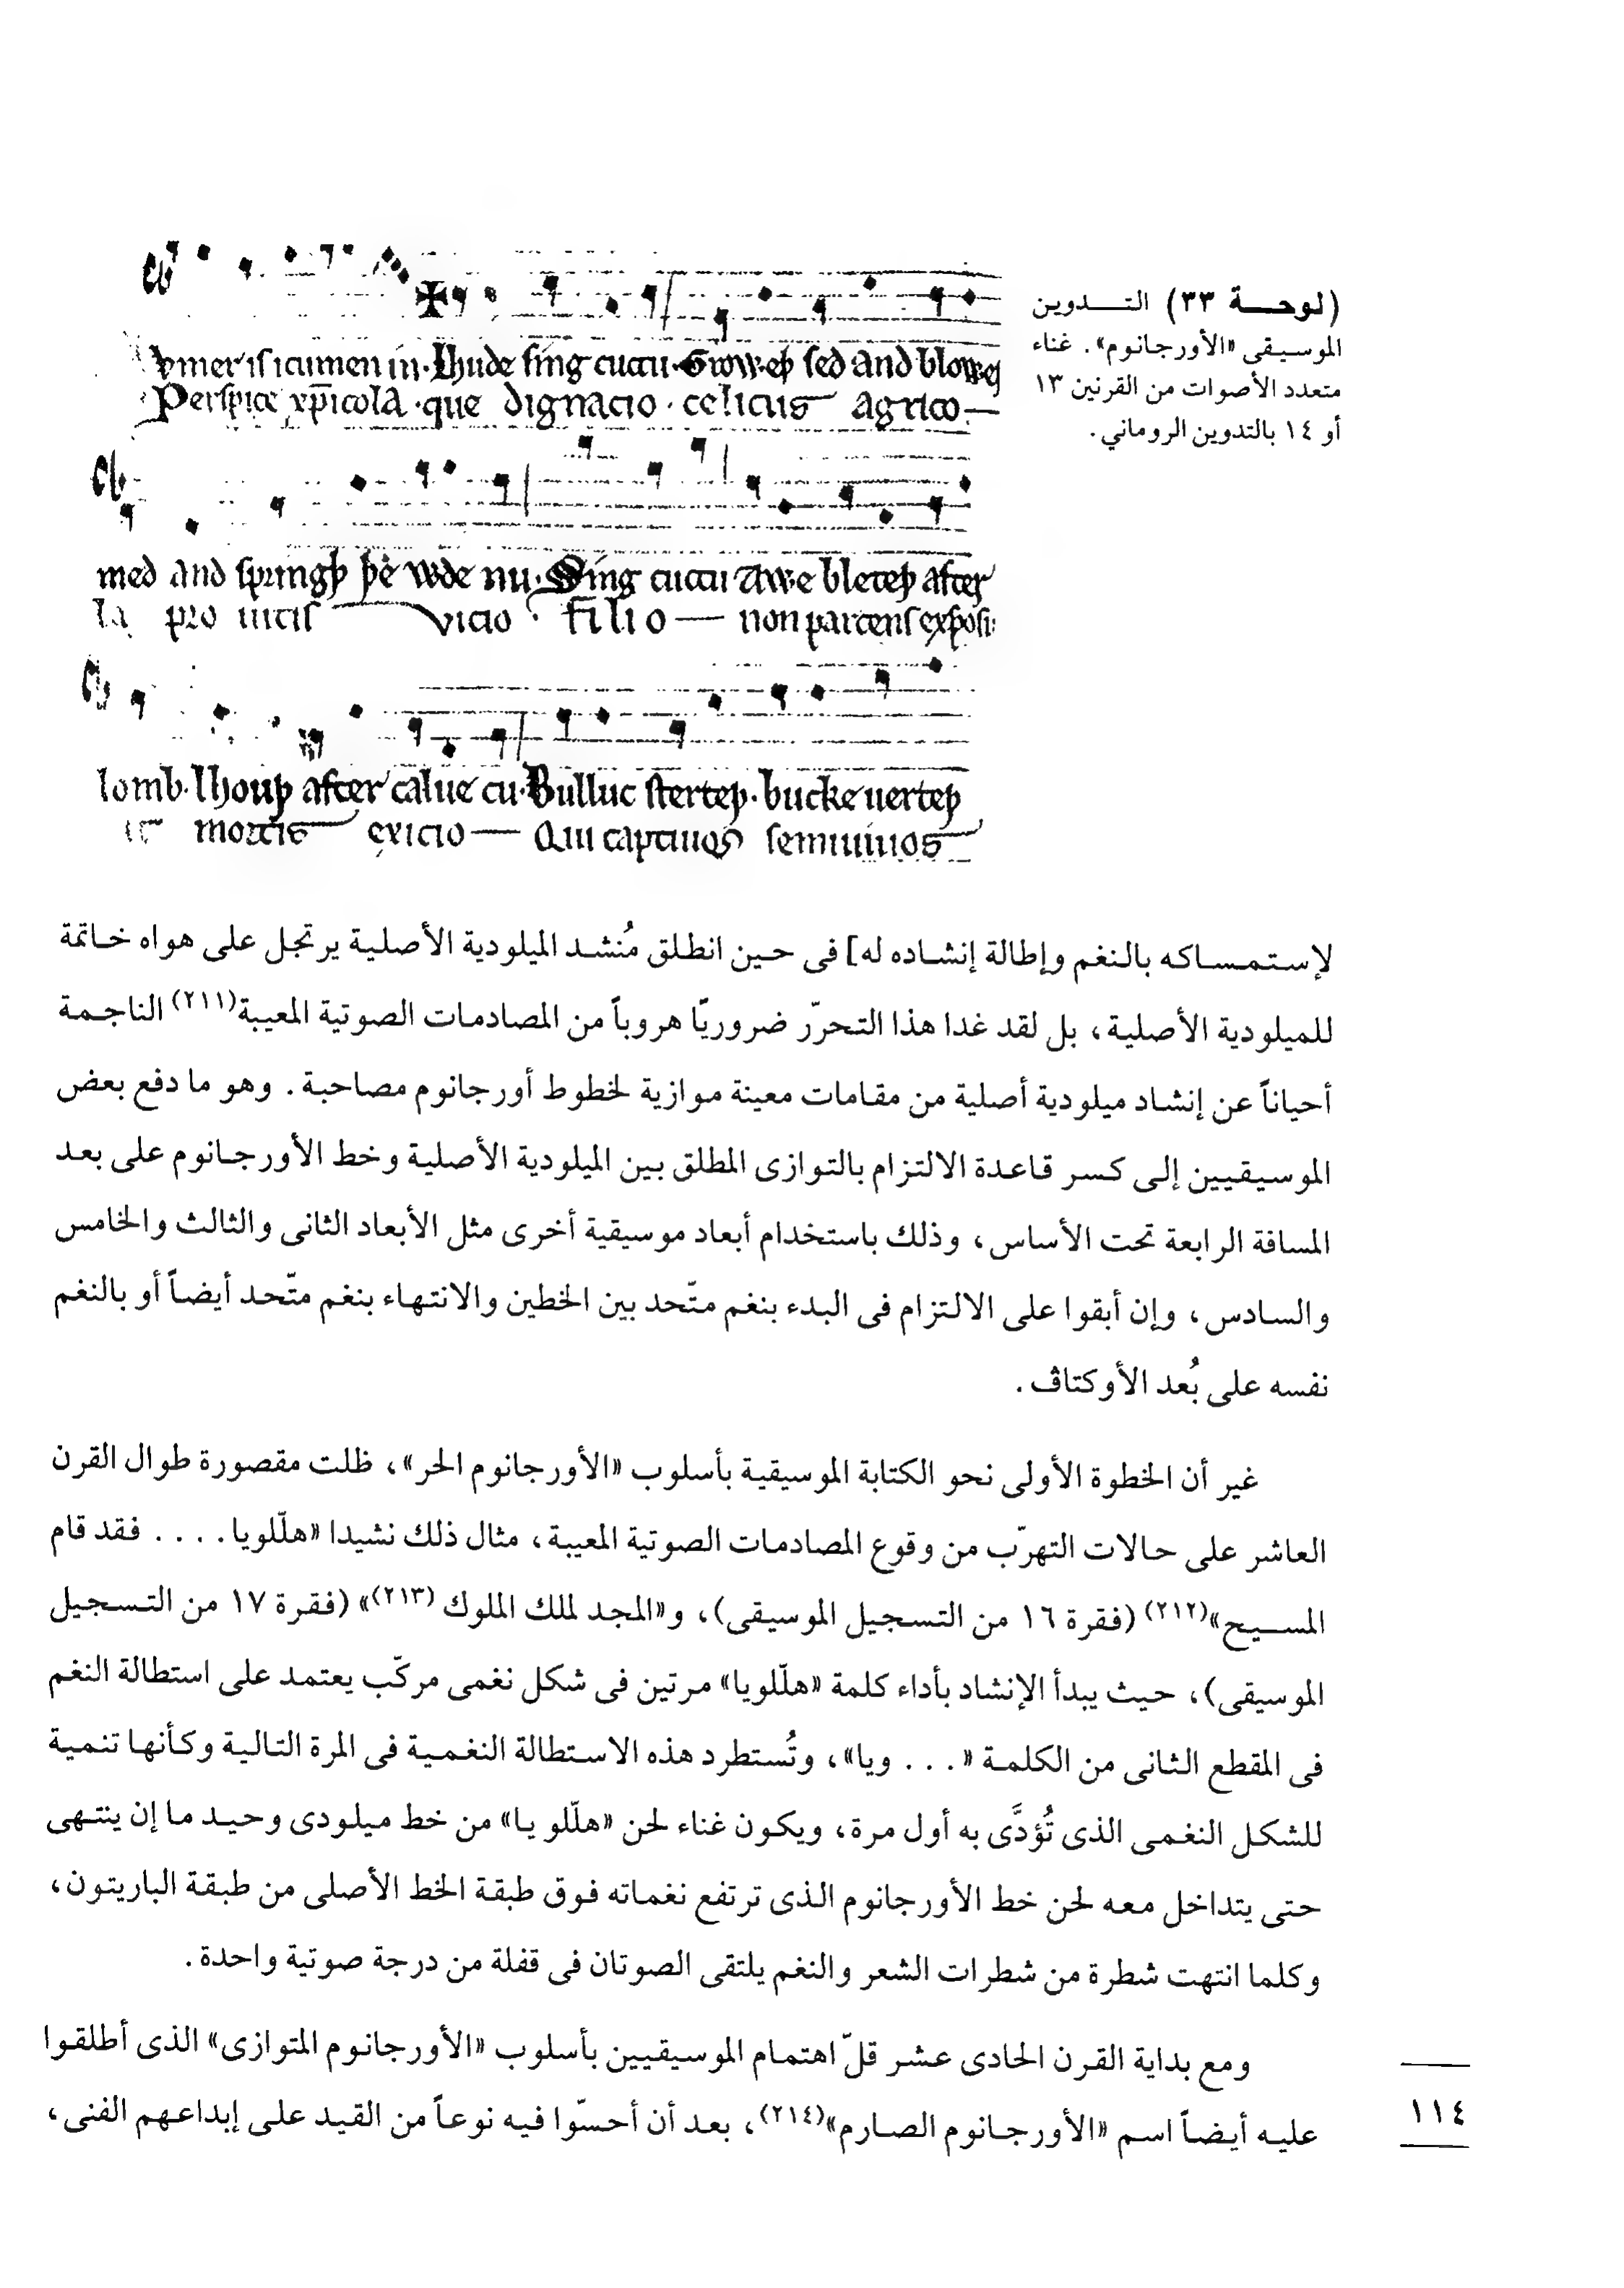 (لوحة ٣٣) التدوين
الموسيقى «الأورجانوم». غناء
متعدد الأصوات من القرنين ١٣
أو ١٤ بالتدوين الروماني.
vmer is icumen in. Lhude sing cuccu. Groweþ sed and bloweþ
Perspice xp̄icola. que dignacio. celicus agrico
med and springþ þe wde nu. Sing cuccu Awe bleteþ after
la pro uitis vicio. filio non parcens exposi
lomb. lhouþ after calue cu. Bulluc sterteþ. bucke uerteþ
mortis exicio Qui captiuos semiuiuos
لإستمساكه بالنغم وإطالة إنشاده له] فى حين انطلق مُنشد الميلودية الأصلية يرتجل على هواه خاتمة
للميلودية الأصلية، بل لقد غدا هذا التحرّر ضروريًا هروباً من المصادمات الصوتية المعيبة(٢١١) الناجمة
أحياناً عن إنشاد ميلودية أصلية من مقامات معينة موازية لخطوط أورجانوم مصاحبة. وهو ما دفع بعض
الموسيقيين إلى كسر قاعدة الالتزام بالتوازى المطلق بين الميلودية الأصلية وخط الأورجانوم على بعد
المسافة الرابعة تحت الأساس، وذلك باستخدام أبعاد موسيقية أخرى مثل الأبعاد الثانى والثالث والخامس
والسادس، وإن أبقوا على الالتزام فى البدء بنغم متّحد بين الخطين والانتهاء بنغم متّحد أيضاً أو بالنغم
نفسه على بُعد الأوكتاڤ.
غير أن الخطوة الأولى نحو الكتابة الموسيقية بأسلوب «الأورجانوم الحر»، ظلت مقصورة طوال القرن
العاشر على حالات التهرّب من وقوع المصادمات الصوتية المعيبة، مثال ذلك نشيدا «هلّلويا.... فقد قام
المسيح»(٢١٢) (فقرة ١٦ من التسجيل الموسيقى)، و«المجد لملك الملوك (٢١٣)» (فقرة ١٧ من التسجيل
الموسيقى)، حيث يبدأ الإنشاد بأداء كلمة «هلّلويا» مرتين فى شكل نغمى مركّب يعتمد على استطالة النغم
فى المقطع الثانى من الكلمة «... ويا»، وتُستطرد هذه الاستطالة النغمية فى المرة التالية وكأنها تنمية
للشكل النغمى الذى تُؤدَّى به أول مرة، ويكون غناء لحن «هلّلو يا» من خط ميلودى وحيد ما إن ينتهى
حتى يتداخل معه لحن خط الأورجانوم الذى ترتفع نغماته فوق طبقة الخط الأصلى من طبقة الباريتون،
وكلما انتهت شطرة من شطرات الشعر والنغم يلتقى الصوتان فى قفلة من درجة صوتية واحدة.
ومع بداية القرن الحادى عشر قلّ اهتمام الموسيقيين بأسلوب «الأورجانوم المتوازى» الذى أطلقوا
عليه أيضاً اسم «الأورجانوم الصارم»(٢١٤)، بعد أن أحسّوا فيه نوعاً من القيد على إبداعهم الفنى،
١١٤